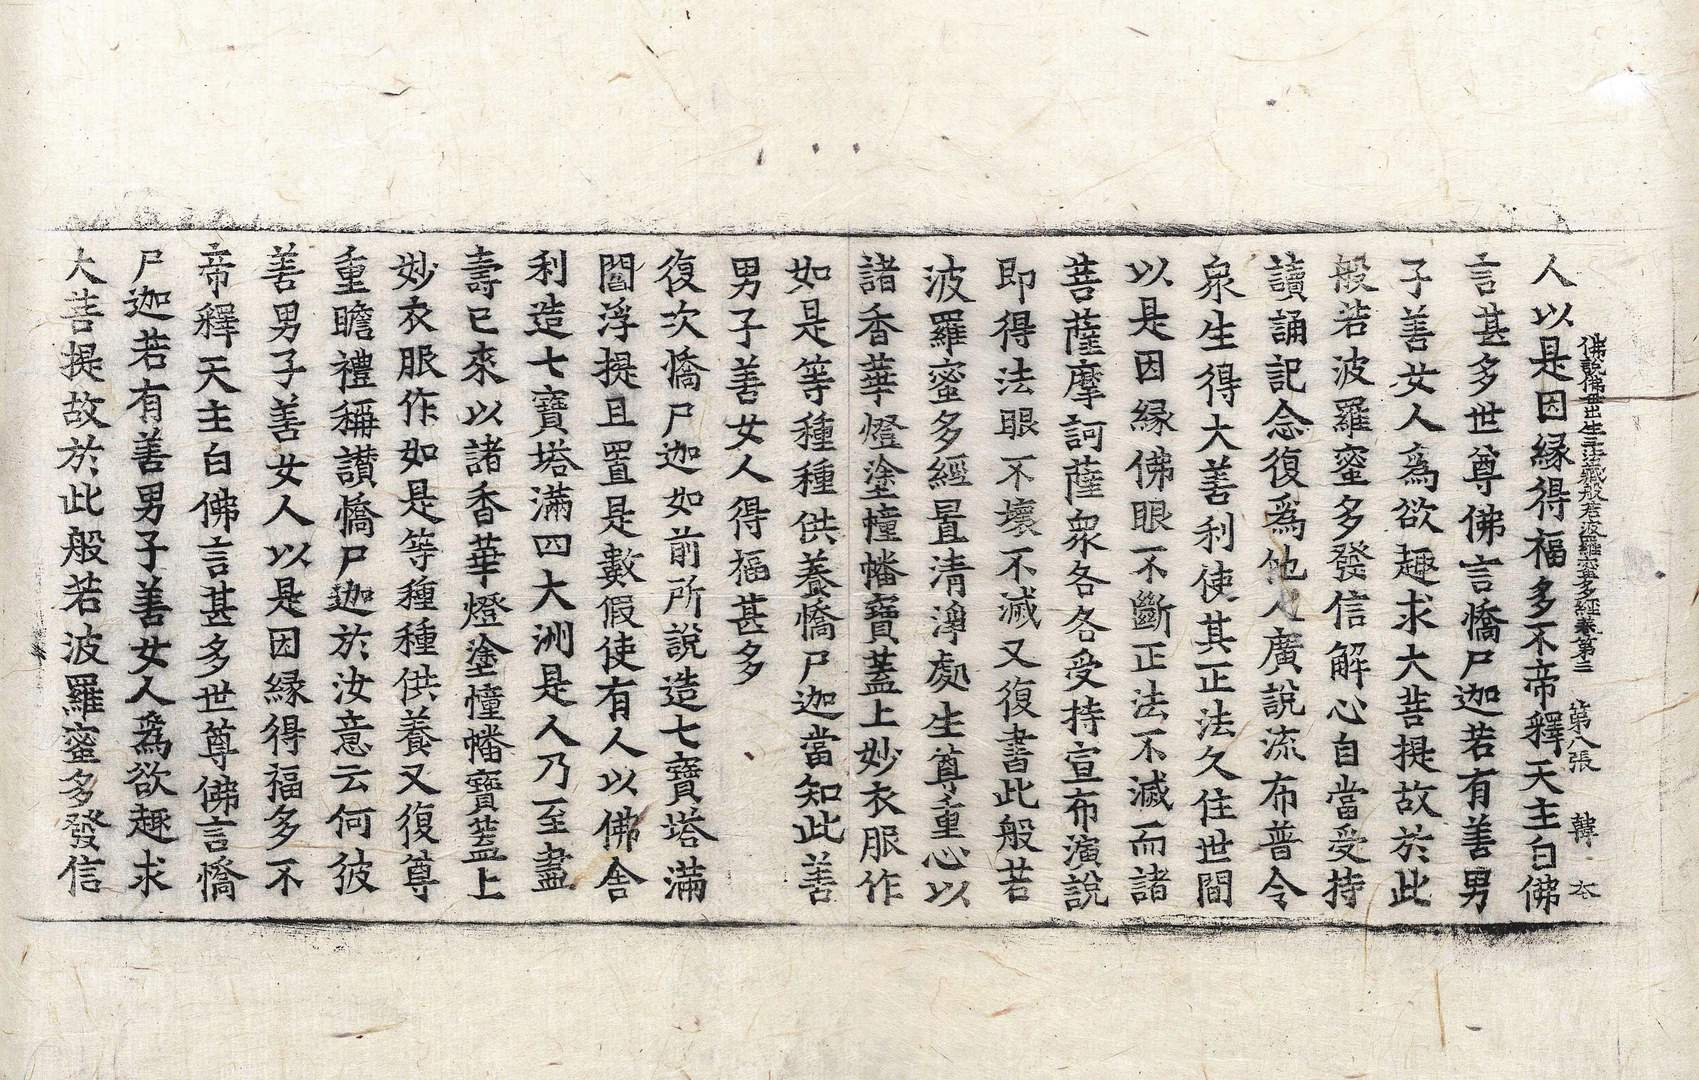 佛說佛母出生三法藏般若波羅蜜多經卷第三 第八張 韓 大
人以是因縁得福多不帝釋天主白佛
言甚多世尊佛言憍尸迦若有善男
子善女人爲欲趣求大菩提故於此
般若波羅蜜多發信解心自當受持
讀誦記念復爲他人廣說流布普令
衆生得大善利使其正法久住世間
以是因縁佛眼不斷正法不滅而諸
菩薩摩訶薩衆各各受持宣布演說
即得法眼不壞不滅又復書此般若
波羅蜜多經置清淨處生尊重心以
諸香華燈塗幢幡寶蓋上妙衣服作
如是等種種供養憍尸迦當知此善
男子善女人得福甚多
復次憍尸迦如前所說造七寶塔滿
閻浮提且置是數假使有人以佛舍
利造七寶塔滿四大洲是人乃至盡
壽已來以諸香華燈塗幢幡寶蓋上
妙衣服作如是等種種供養又復尊
重瞻禮稱讃憍尸迦於汝意云何彼
善男子善女人以是因縁得福多不
帝釋天主白佛言甚多世尊佛言憍
尸迦若有善男子善女人爲欲趣求
大菩提故於此般若波羅蜜多發信